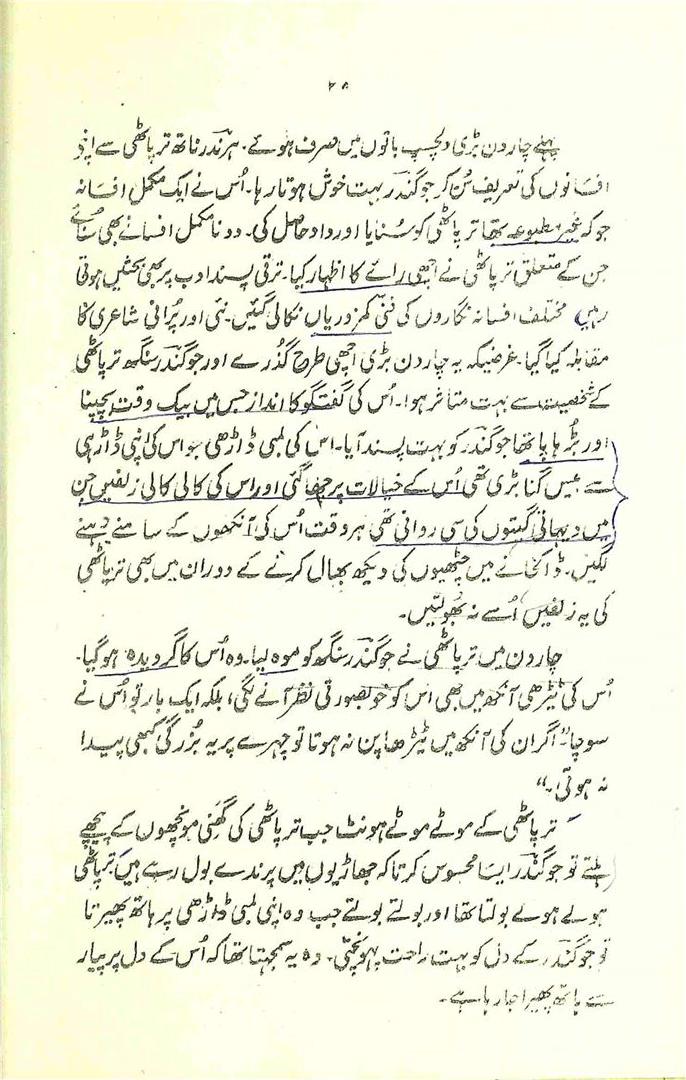 ۲۵
پہلے چار دن بڑی دلچسپ باتوں میں صرف ہوئے۔ ہرندر ناتھ ترپاٹھی سے اپنے
افسانوں کی تعریف سُن کر جوگندر بہت خوش ہوتا رہا۔ اُس نے ایک مکمل افسانہ
جو کہ غیر مطبوعہ تھا ترپاٹھی کو سُنایا اور داد حاصل کی۔ دو نامکمل افسانے بھی سُنائے
جن کے متعلق ترپاٹھی نے اچھی رائے کا اظہار کیا۔ ترقی پسند ادب پر بھی بحثیں ہوتی
رہیں مختلف افسانہ نگاروں کی فنّی کمزوریاں نکالی گئیں۔ نئی اور پُرانی شاعری کا
مقابلہ کیا گیا۔ غرضیکہ یہ چار دن بڑی اچھی طرح گذرے اور جوگندر سنگھ ترپاٹھی
کے شخصیت سے بہت متاثر ہوا۔ اُس کی گفتگو کا انداز جس میں بیک وقت بچپنا
اور بُڑھاپا تھا جوگندر کو بہت پسند آیا۔ اس کی لمبی ڈاڑھی جو اس کی اپنی ڈاڑھی
سے بیس گنا بڑی تھی اُس کے خیالات پر چھا گئی اور اس کی کالی کالی زلفیں جن
میں دیہاتی گیتوں کی سی روانی تھی ہر وقت اُس کی آنکھوں کے سامنے رہنے
لگیں۔ ڈاکخانے میں چٹھیوں کی دیکھ بھال کرنے کے دوران میں بھی ترپاٹھی
کی یہ زلفیں اُسے نہ بھُولتیں۔
چار دن میں ترپاٹھی نے جوگندر سنگھ کو موہ لیا۔ وہ اُس کا گرویدہ ہو گیا۔
اُس کی ٹیڑھی آنکھ میں بھی اس کو خوبصورتی نظر آنے لگی، بلکہ ایک بار تو اُس نے
سوچا ”اگر ان کی آنکھ میں ٹیڑھاپن نہ ہوتا تو چہرے پر یہ بُزرگی کبھی پیدا
نہ ہوتی۔“
ترپاٹھی کے موٹے موٹے ہونٹ جب ترپاٹھی کی گھنی مونچھوں کے پیچھے
ہلتے تو جوگندر ایسا محسوس کرتا کہ جھاڑیوں میں پرندے بول رہے ہیں۔ ترپاٹھی
ہولے ہولے بولتا تھا اور بولتے بولتے جب وہ اپنی لمبی ڈاڑھی پر ہاتھ پھیرتا
تو جوگندر کے دل کو بہت راحت پہونچتی۔ وہ یہ سمجھتا تھا کہ اُس کے دل پر پیار
سے ہاتھ پھیرا جا رہا ہے۔